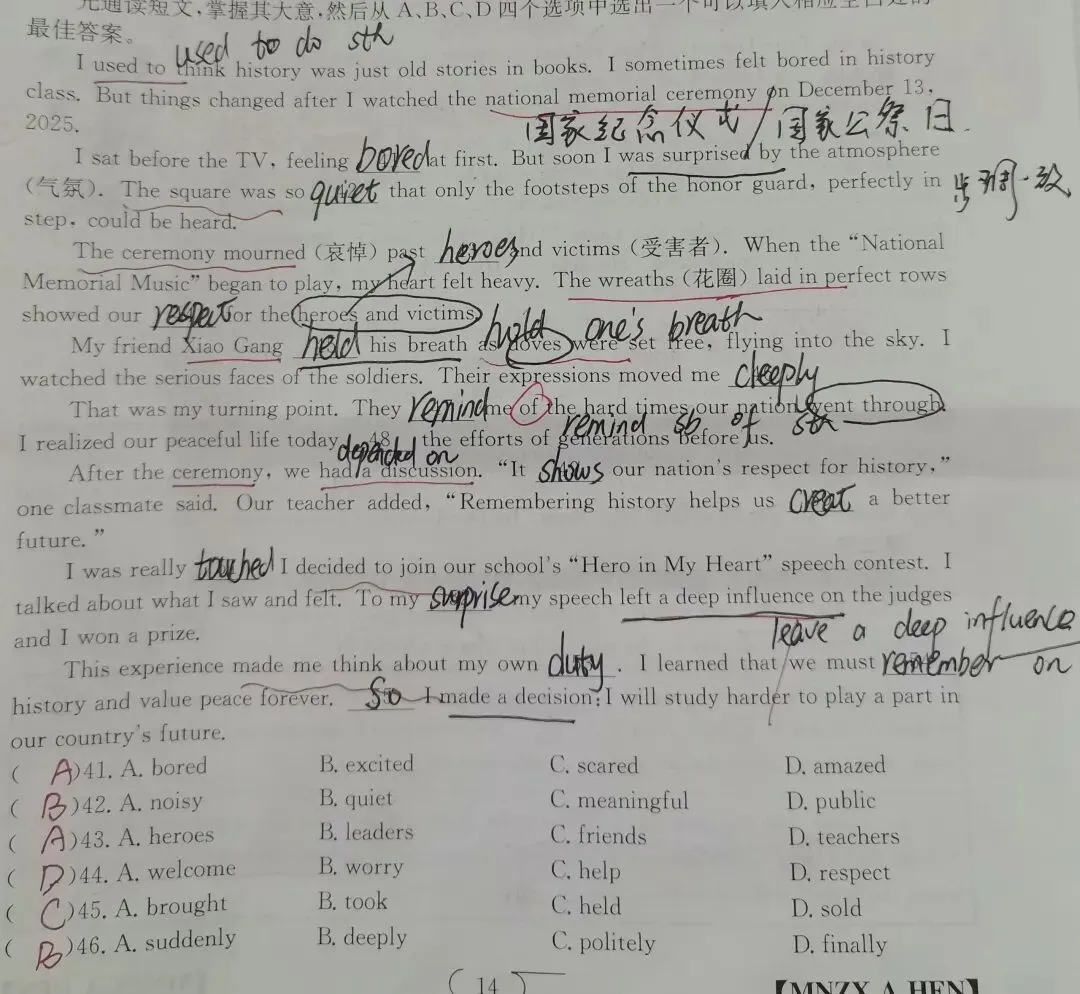 先通读短文,掌握其大意,然后从A、B、C、D四个选项中选出一个可以填入相应空白处的
最佳答案。
used to do sth
I used to think history was just old stories in books. I sometimes felt bored in history
class. But things changed after I watched the national memorial ceremony on December 13,
2025.
国家纪念仪式/国家公祭日.
I sat before the TV, feeling bored at first. But soon I was surprised by the atmosphere
(气氛). The square was so quiet that only the footsteps of the honor guard, perfectly in
步调一致
step, could be heard.
The ceremony mourned (哀悼) past heroes and victims (受害者). When the “National
Memorial Music” began to play, my heart felt heavy. The wreaths (花圈) laid in perfect rows
showed our respect for the heroes and victims.
hold one's breath
My friend Xiao Gang held his breath as doves were set free, flying into the sky. I
watched the serious faces of the soldiers. Their expressions moved me deeply
That was my turning point. They remind me of the hard times our nation went through.
remind sb of sth
I realized our peaceful life today 48 the efforts of generations before us.
depended on
After the ceremony, we had a discussion. “It shows our nation's respect for history,”
one classmate said. Our teacher added, “Remembering history helps us creat a better
future.”
I was really touched I decided to join our school's “Hero in My Heart” speech contest. I
talked about what I saw and felt. To my surprise my speech left a deep influence on the judges
and I won a prize.
leave a deep influence on
This experience made me think about my own duty. I learned that we must remember
history and value peace forever. So I made a decision: I will study harder to play a part in
our country's future.
( A )41. A. bored B. excited C. scared D. amazed
( B )42. A. noisy B. quiet C. meaningful D. public
( A )43. A. heroes B. leaders C. friends D. teachers
( D )44. A. welcome B. worry C. help D. respect
( C )45. A. brought B. took C. held D. sold
( B )46. A. suddenly B. deeply C. politely D. finally
( 14 )
【MNZX A HEN】